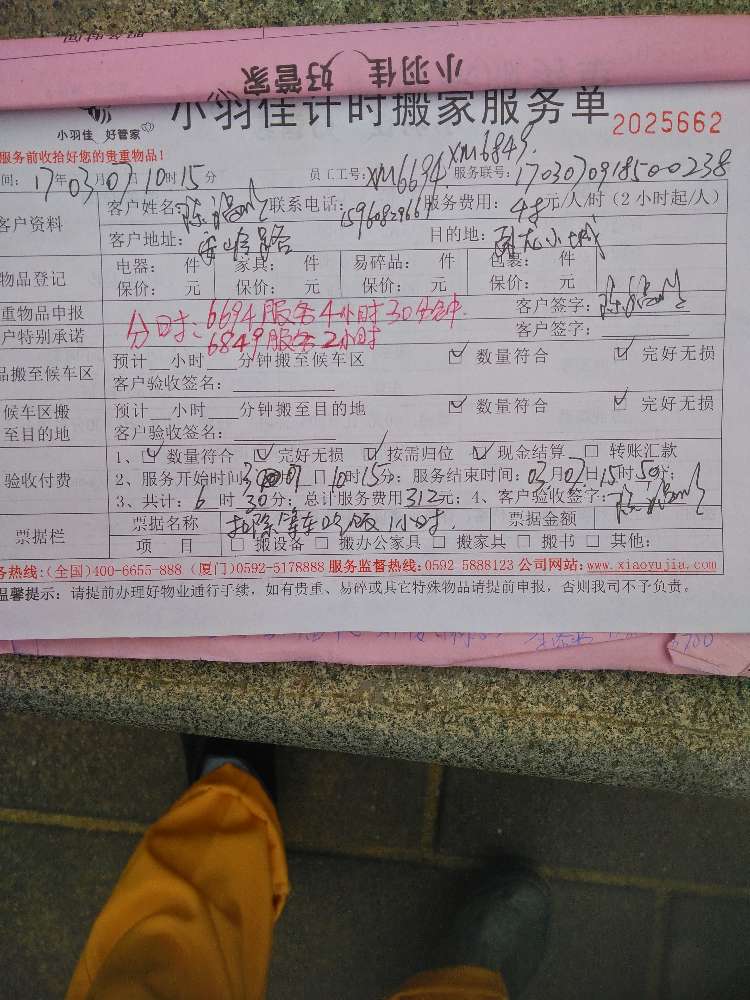 小羽佳 好管家
小羽佳计时搬家服务单
小羽佳 好管家
2025662
服务前收拾好您的贵重物品!
间: 17年03月07日10时15分 员工工号: XM6694 XM6849 服务联号: 170307091850-0238
客户资料
客户姓名: 联系电话: 服务费用: 48元/人/时(2小时起/人)
客户地址: 目的地:
物品登记
电器: 件 家具: 件 易碎品: 件 包裹: 件
保价: 元 保价: 元 保价: 元 保价: 元
重物品申报 客户签字:
分时: 6694服务4小时30分钟.
户特别承诺 客户签字:
6849服务2小时
品搬至候车区
预计__小时___分钟搬至候车区 数量符合 完好无损
客户验收签名:
候车区搬至目的地
预计__小时___分钟搬至目的地 数量符合 完好无损
客户验收签名:
验收付费
1、数量符合 完好无损 按需归位 现金结算 □ 转账汇款
2、服务开始时间: 日10时15分; 服务结束时间: 03月07日15时50分;
3、共计: 6时30分; 总计服务费用312元; 4、客户验收签字:
票据栏
票据名称 扣除等车吃饭1小时. 票据金额
项 目 □ 搬设备 □ 搬办公家具 □ 搬家具 □ 搬书 □ 其他:
务热线:(全国)400-6655-888 (厦门)0592-5178888 服务监督热线:0592 5888123 公司网站:www.xiaoyujia.com
温馨提示: 请提前办理好物业通行手续,如有贵重、易碎或其它特殊物品请提前申报,否则我司不予负责。